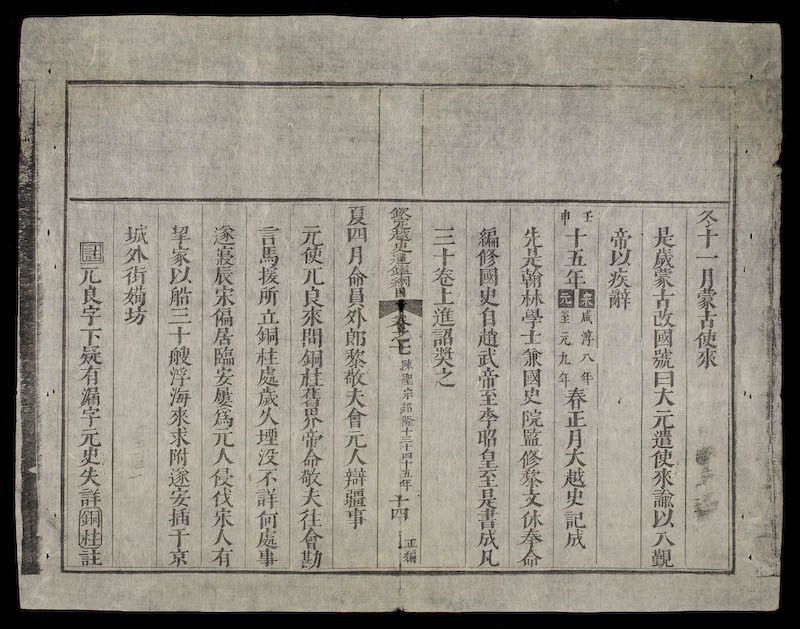 冬十一月蒙古使來
是歲蒙古改國號曰大元遣使來諭以入覲
帝以疾辭
壬申十五年宋咸淳八年元至元九年春正月大越史記成
先是翰林學士兼國史院監修黎文休奉命
編修國史自趙武帝至李昭皇至是書成凡
三十卷上進詔奬之
欽定越史通鑑綱目 卷之七 陳聖宗紹隆十三十四十五年 十四 正編
夏四月命員外郎黎敬夫會元人辯疆事
元使兀良來問銅柱舊界帝命敬夫往會勘
言馬援所立銅柱處歲久堙没不詳何處事
遂寢辰宋偏居臨安屢爲元人侵伐宋人有
挈家以船三十艘浮海來求附遂安插于京
城外街㛹坊
註兀良字下疑有漏字元史失詳銅柱註